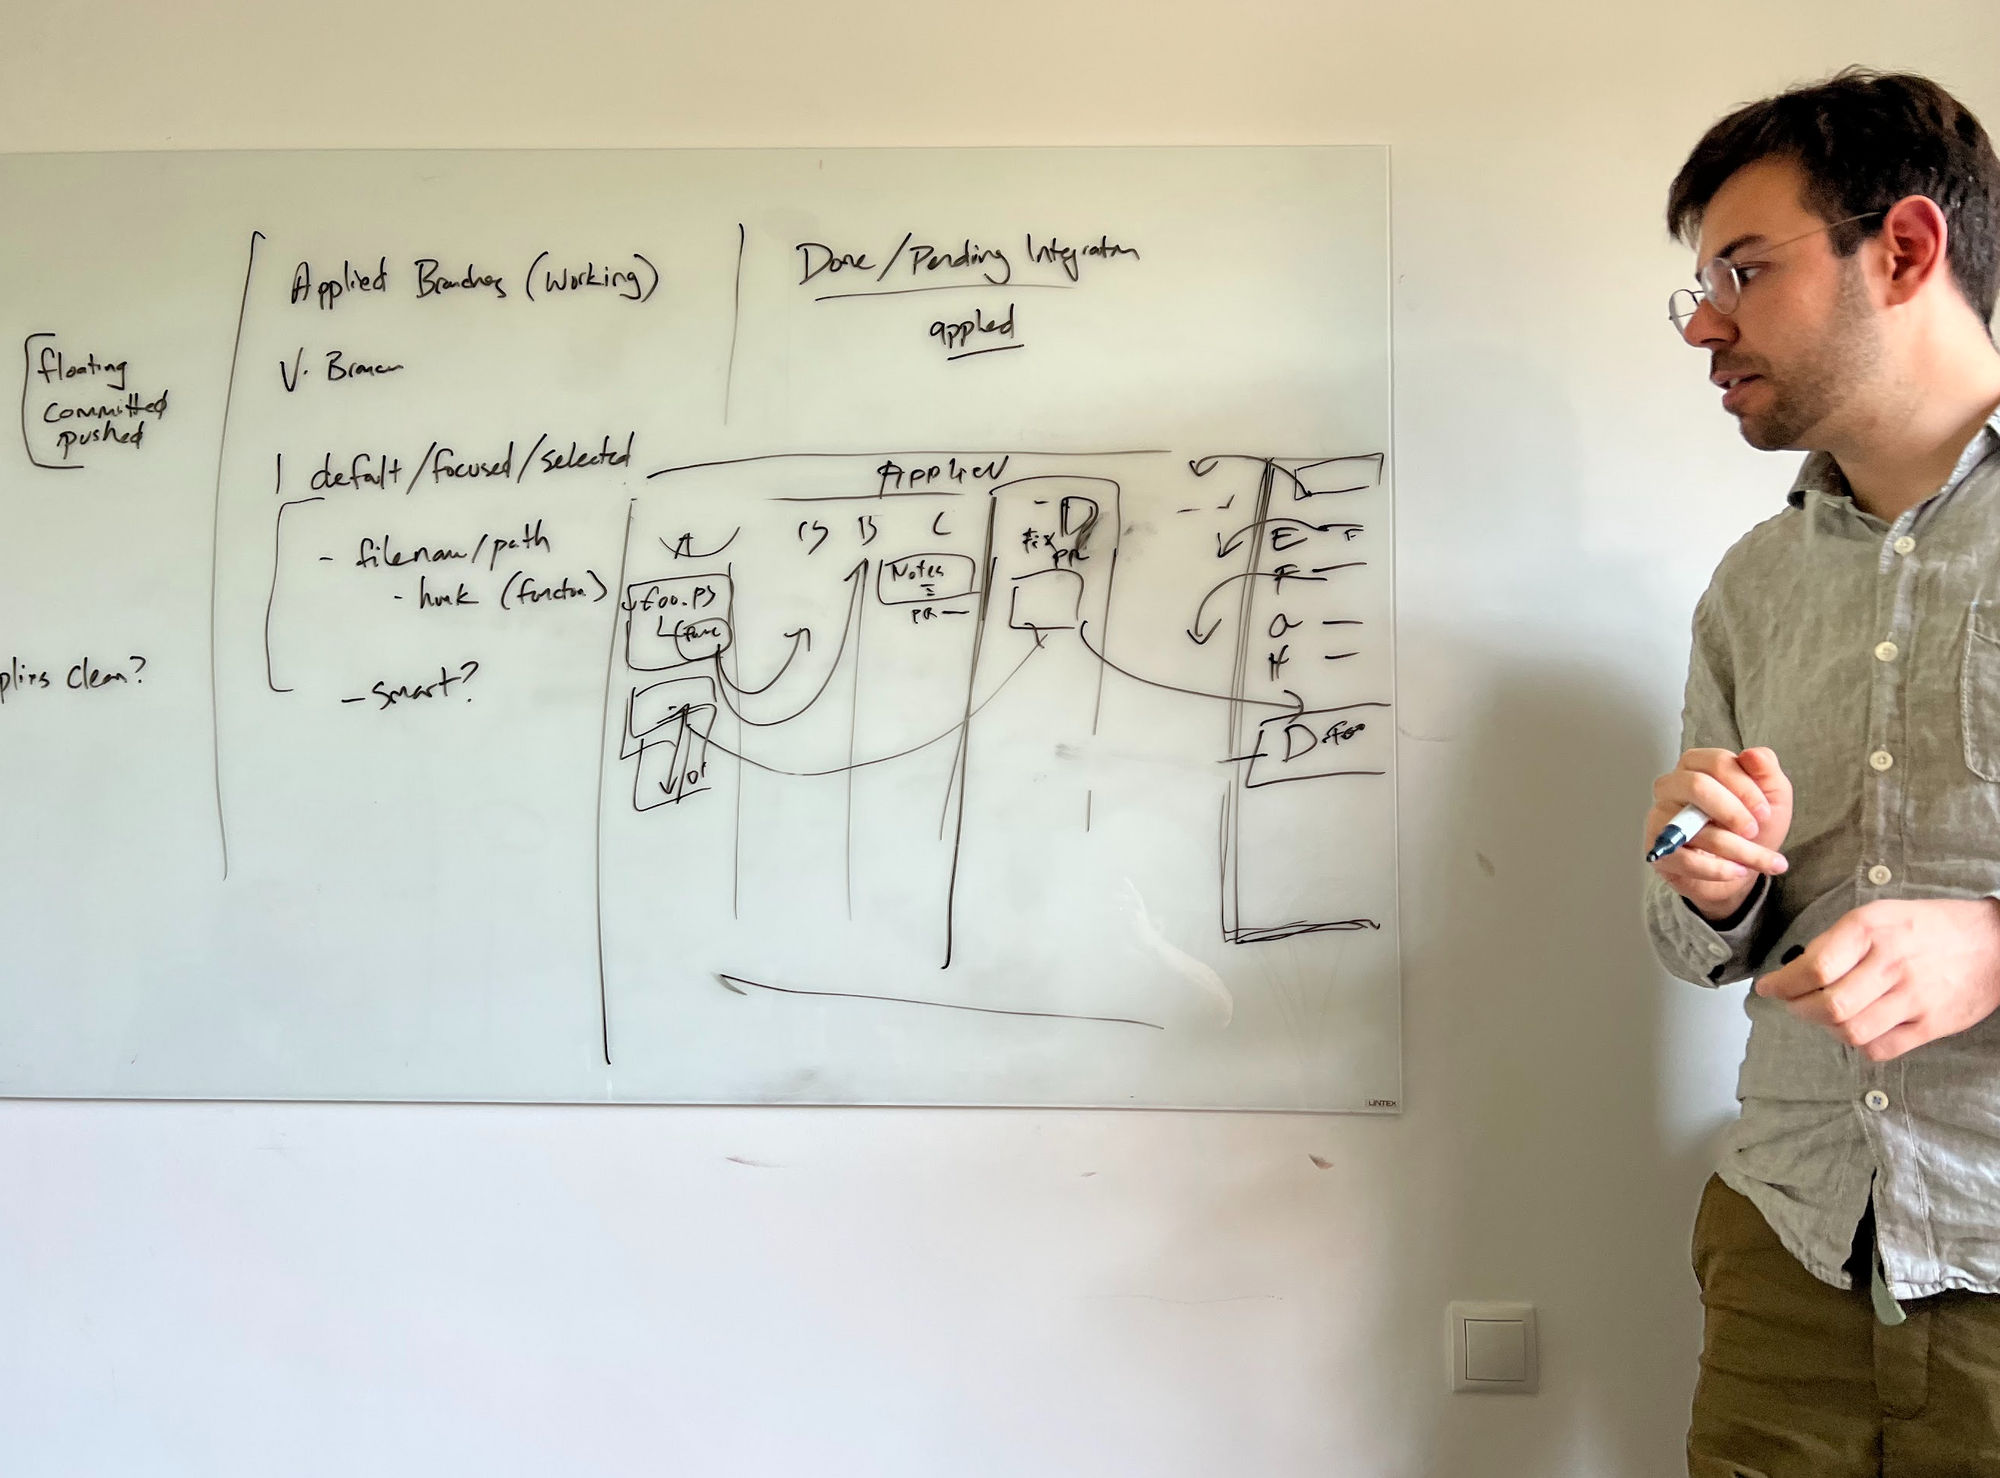 Applied Branches (Working)
Done/Pending Integration
applied
floating
committed
pushed
V. Branch
1 default/focused/selected
- filename/path
- hunk (function)
- smart?
plies clean?
Applied
A
B
B
C
D
Fix
PR
Notes
PR —
foo.rs
func
E — F
F —
G —
H —
D. foo
LINTEX